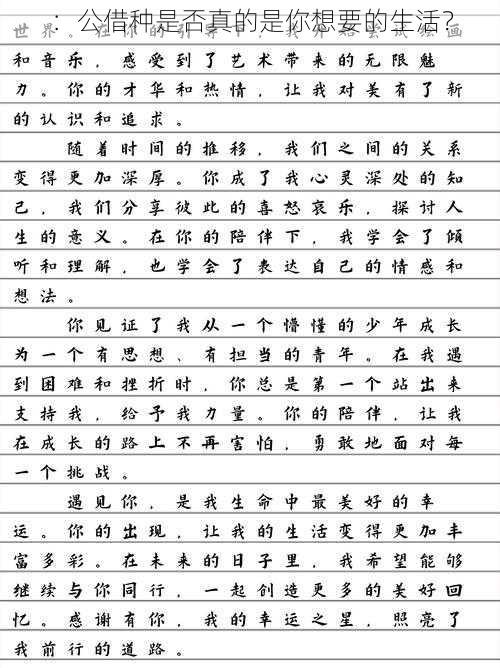 ：公借种是否真的是你想要的生活？
和音乐，感受到了艺术带来的无限魅
力。你的才华和热情，让我对美有了新
的认识和追求。
随着时间的推移，我们之间的关系
变得更加深厚。你成了我心灵深处的知
己，我们分享彼此的喜怒哀乐，探讨人
生的意义。在你的陪伴下，我学会了倾
听和理解，也学会了表达自己的情感和
想法。
你见证了我从一个懵懂的少年成长
为一个有思想、有担当的青年。在我遇
到困难和挫折时，你总是第一个站出来
支持我，给予我力量。你的陪伴，让我
在成长的路上不再害怕，勇敢地面对每
一个挑战。
遇见你，是我生命中最美好的幸
运。你的出现，让我的生活变得更加丰
富多彩。在未来的日子里，我希望能够
继续与你同行，一起创造更多的美好回
忆。感谢有你，我的幸运之星，照亮了
我前行的道路。